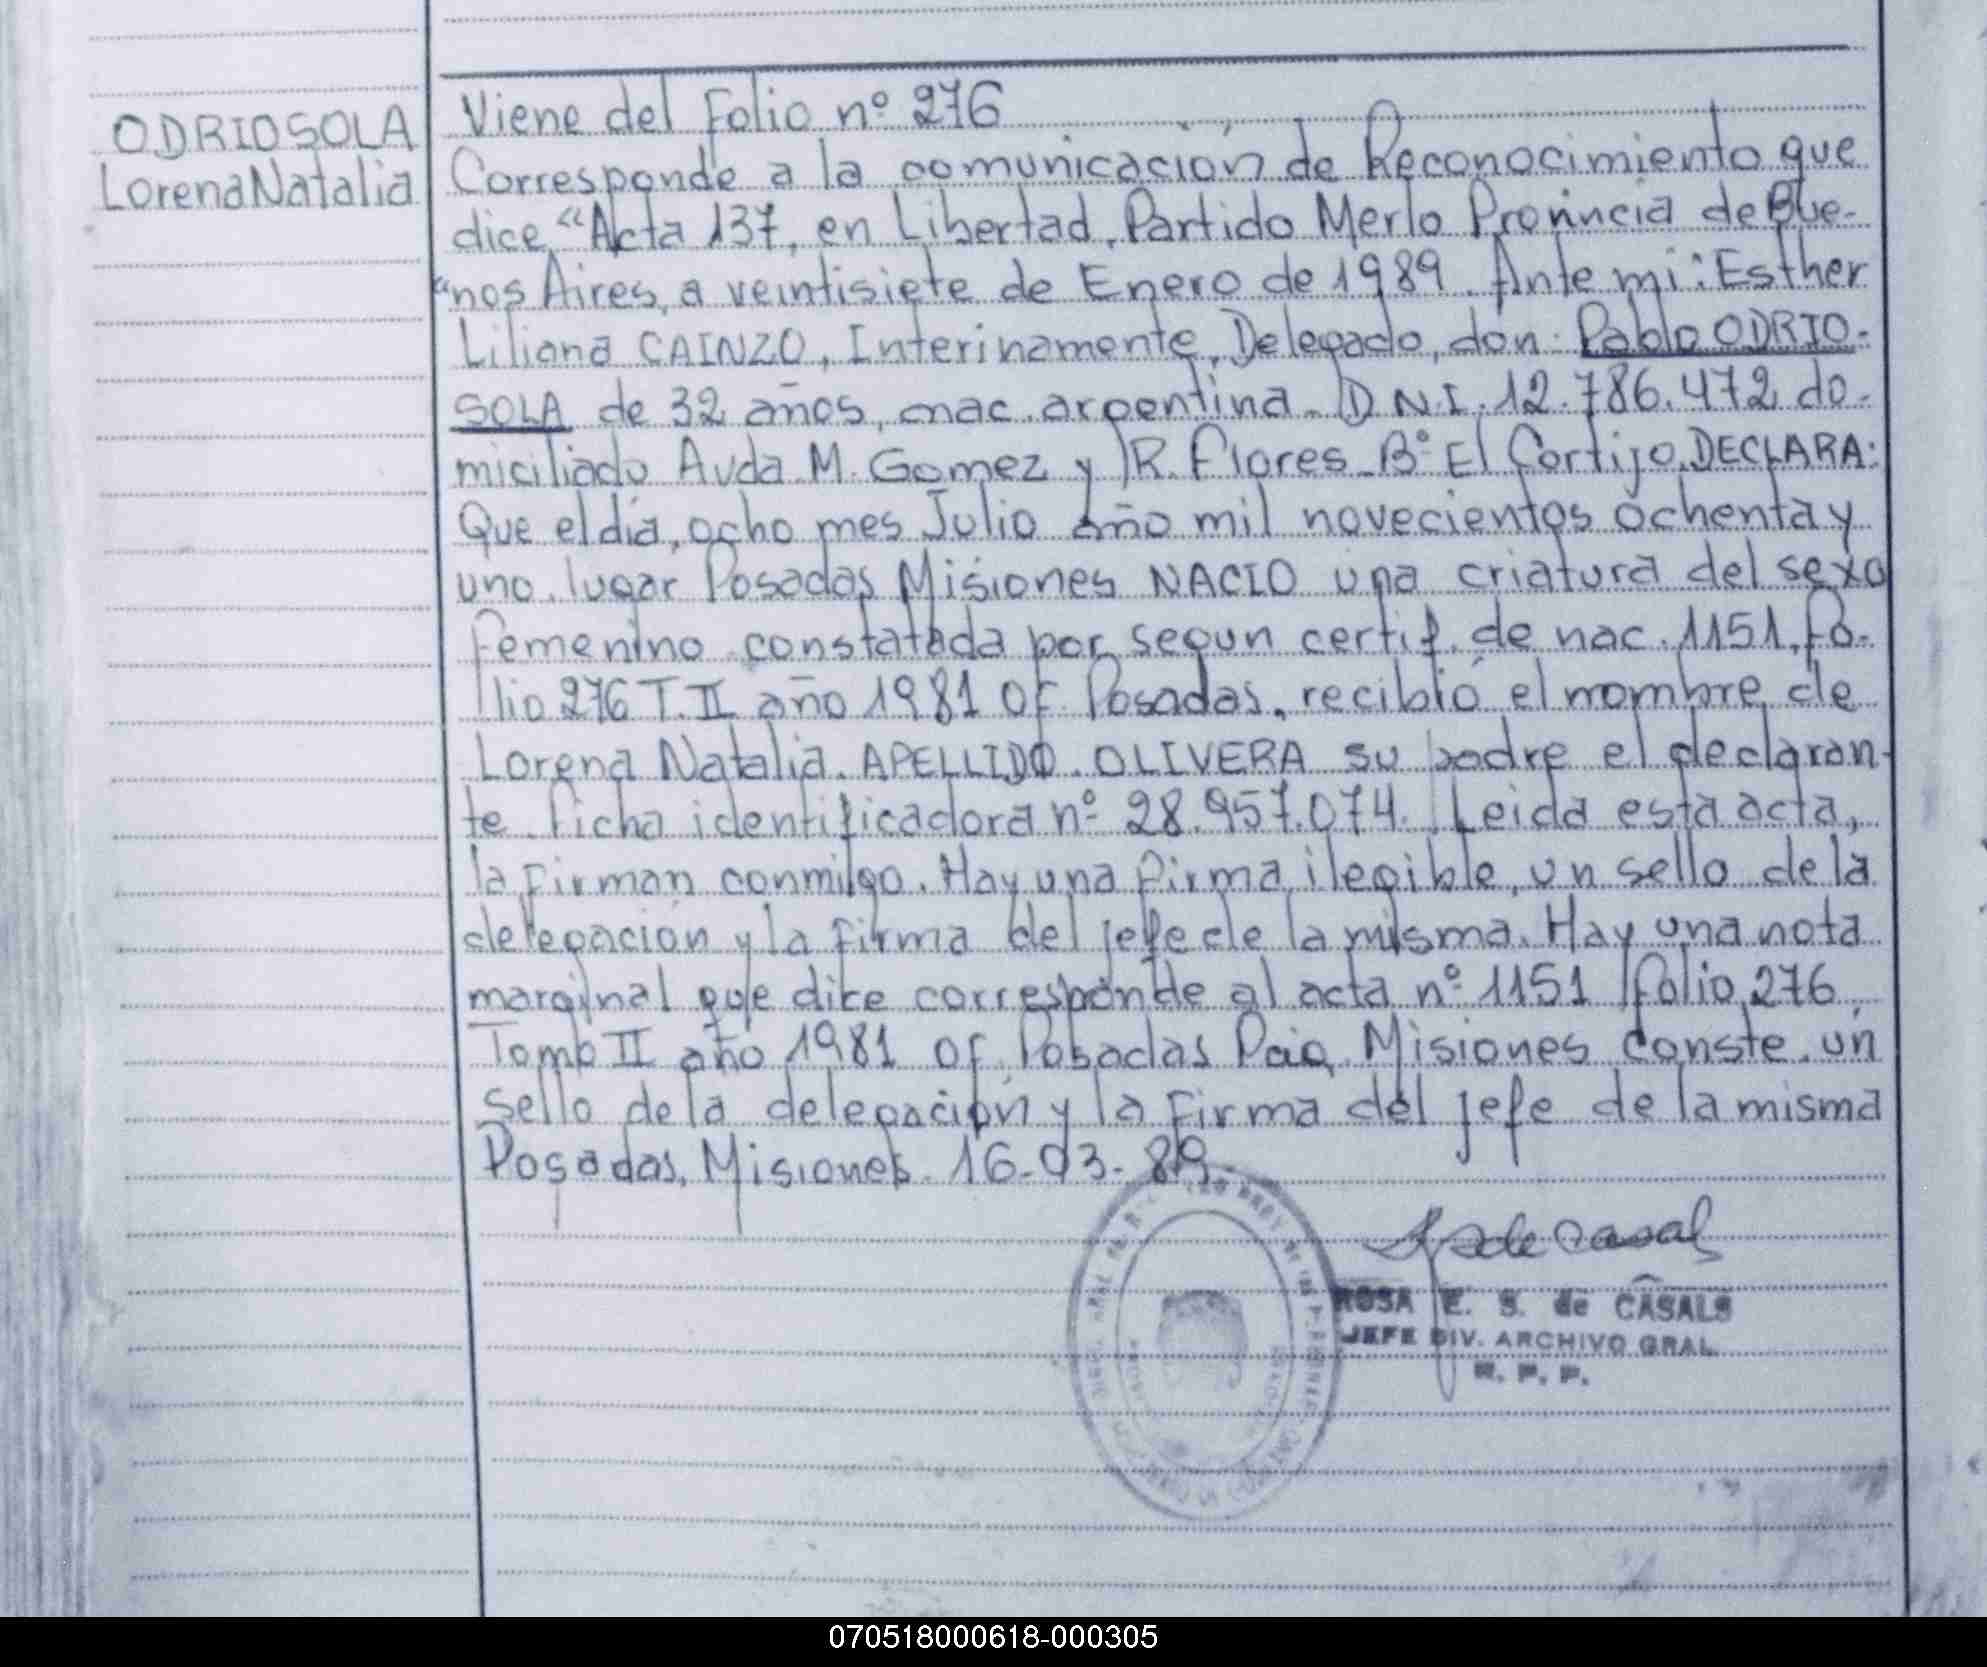 ODRIOSOLA
Lorena Natalia
Viene del Folio nº 276
Corresponde a la comunicación de Reconocimiento que
dice "Acta 137, en Libertad, Partido Merlo Provincia de Bue-
"nos Aires, a veintisiete de Enero de 1989. Ante mi: Esther
Liliana CAINZO, Interinamente, Delegado, don: Pablo ODRIO-
SOLA de 32 años, nac. argentina. D.N.I. 12.786.472 do-
miciliado Avda M. Gomez y R. Flores - Bº El Cortijo, DECLARA:
Que el día, ocho mes Julio año mil novecientos ochenta y
uno, lugar Posadas Misiones NACIO una criatura del sexo
femenino constatada por segun certif. de nac. 1151, Fo-
lio 276 T. II año 1981 Of. Posadas, recibió el nombre de
Lorena Natalia. APELLIDO. OLIVERA su padre el declaran-
te ficha identificadora nº 28.957.074. Leida esta acta,
la firman conmigo. Hay una firma ilegible, un sello de la
delegación y la firma del jefe de la misma. Hay una nota
marginal que dice corresponde al acta nº 1151 folio 276
Tomo II año 1981 Of. Posadas Pcia. Misiones conste. un
sello de la delegación y la firma del jefe de la misma
Posadas, Misiones. 16-03-89.
de Casal
ROSA E. S. de CASALS
JEFE DIV. ARCHIVO GRAL.
R. P. P.
070518000618-000305